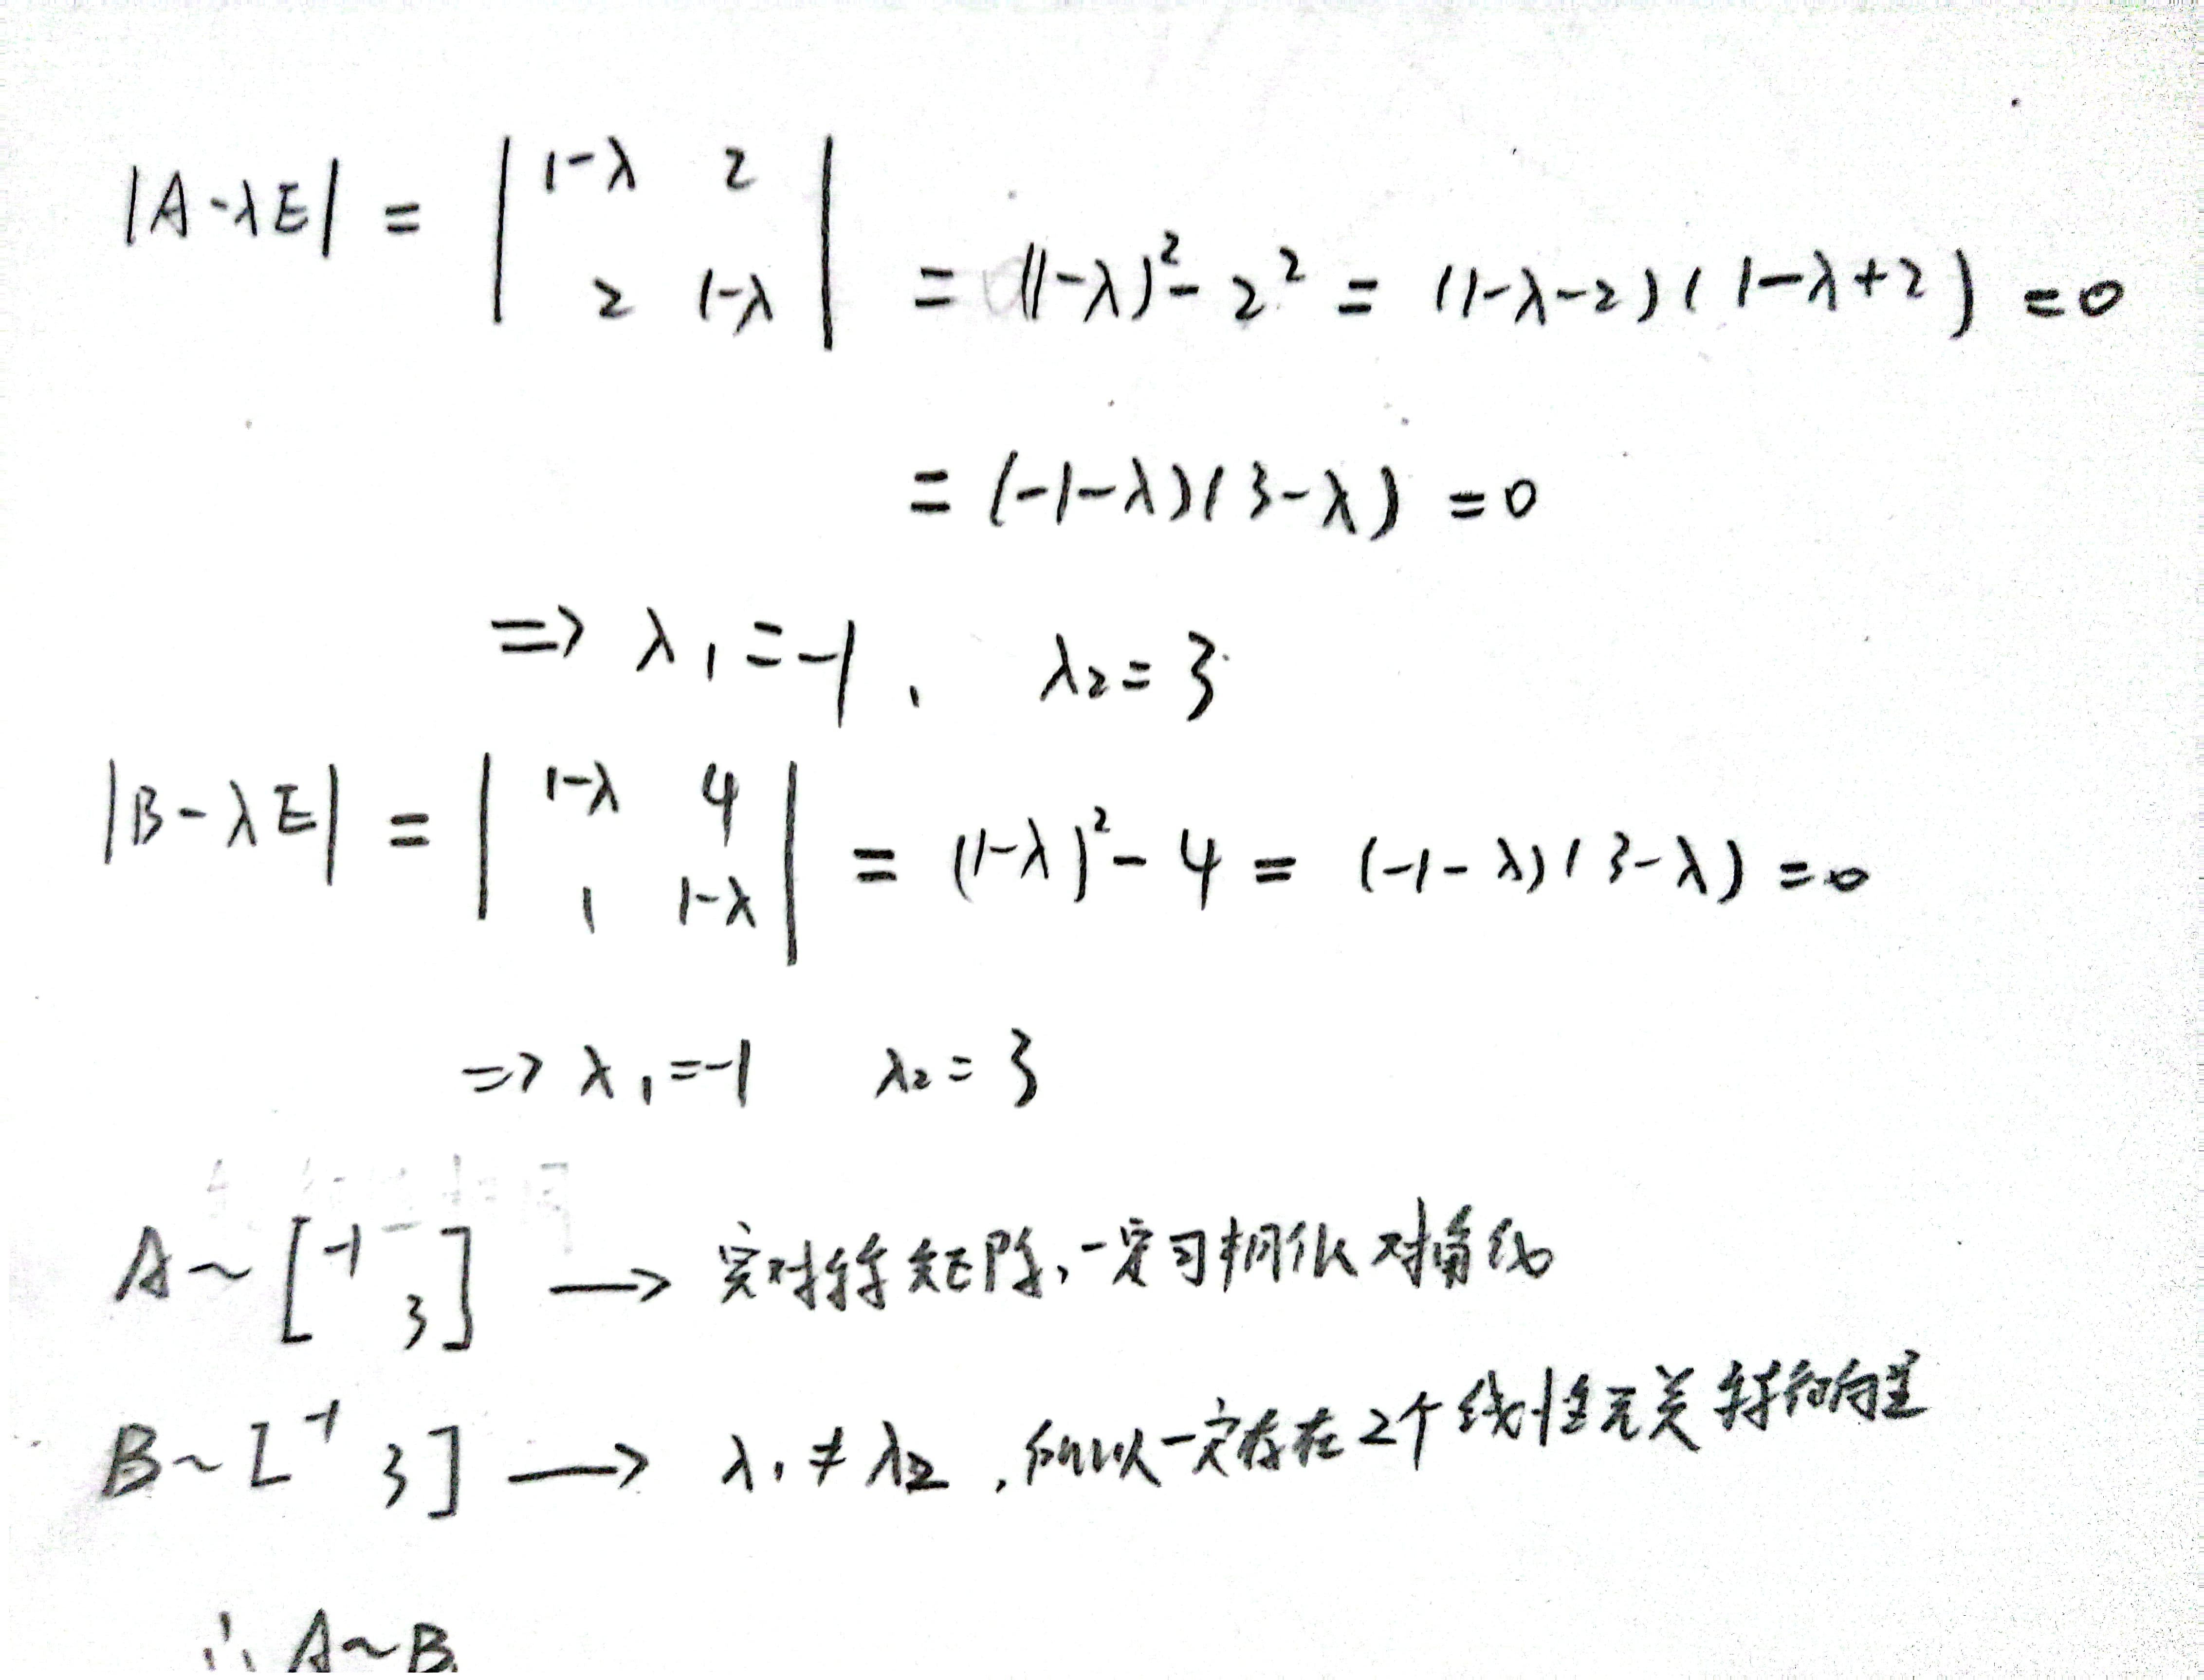 |A-λE| = | 1-λ 2 |
| 2 1-λ | = (1-λ)² - 2² = (1-λ-2)(1-λ+2) = 0
= (-1-λ)(3-λ) = 0
=> λ₁ = -1, λ₂ = 3
|B-λE| = | 1-λ 4 |
| 1 1-λ | = (1-λ)² - 4 = (-1-λ)(3-λ) = 0
=> λ₁ = -1 λ₂ = 3
A ~ [ -1
3 ] → 实对称矩阵,一定可相似对角化
B ~ [ -1
3 ] → λ₁ ≠ λ₂ ,所以一定存在2个线性无关特征向量
∴ A~B.